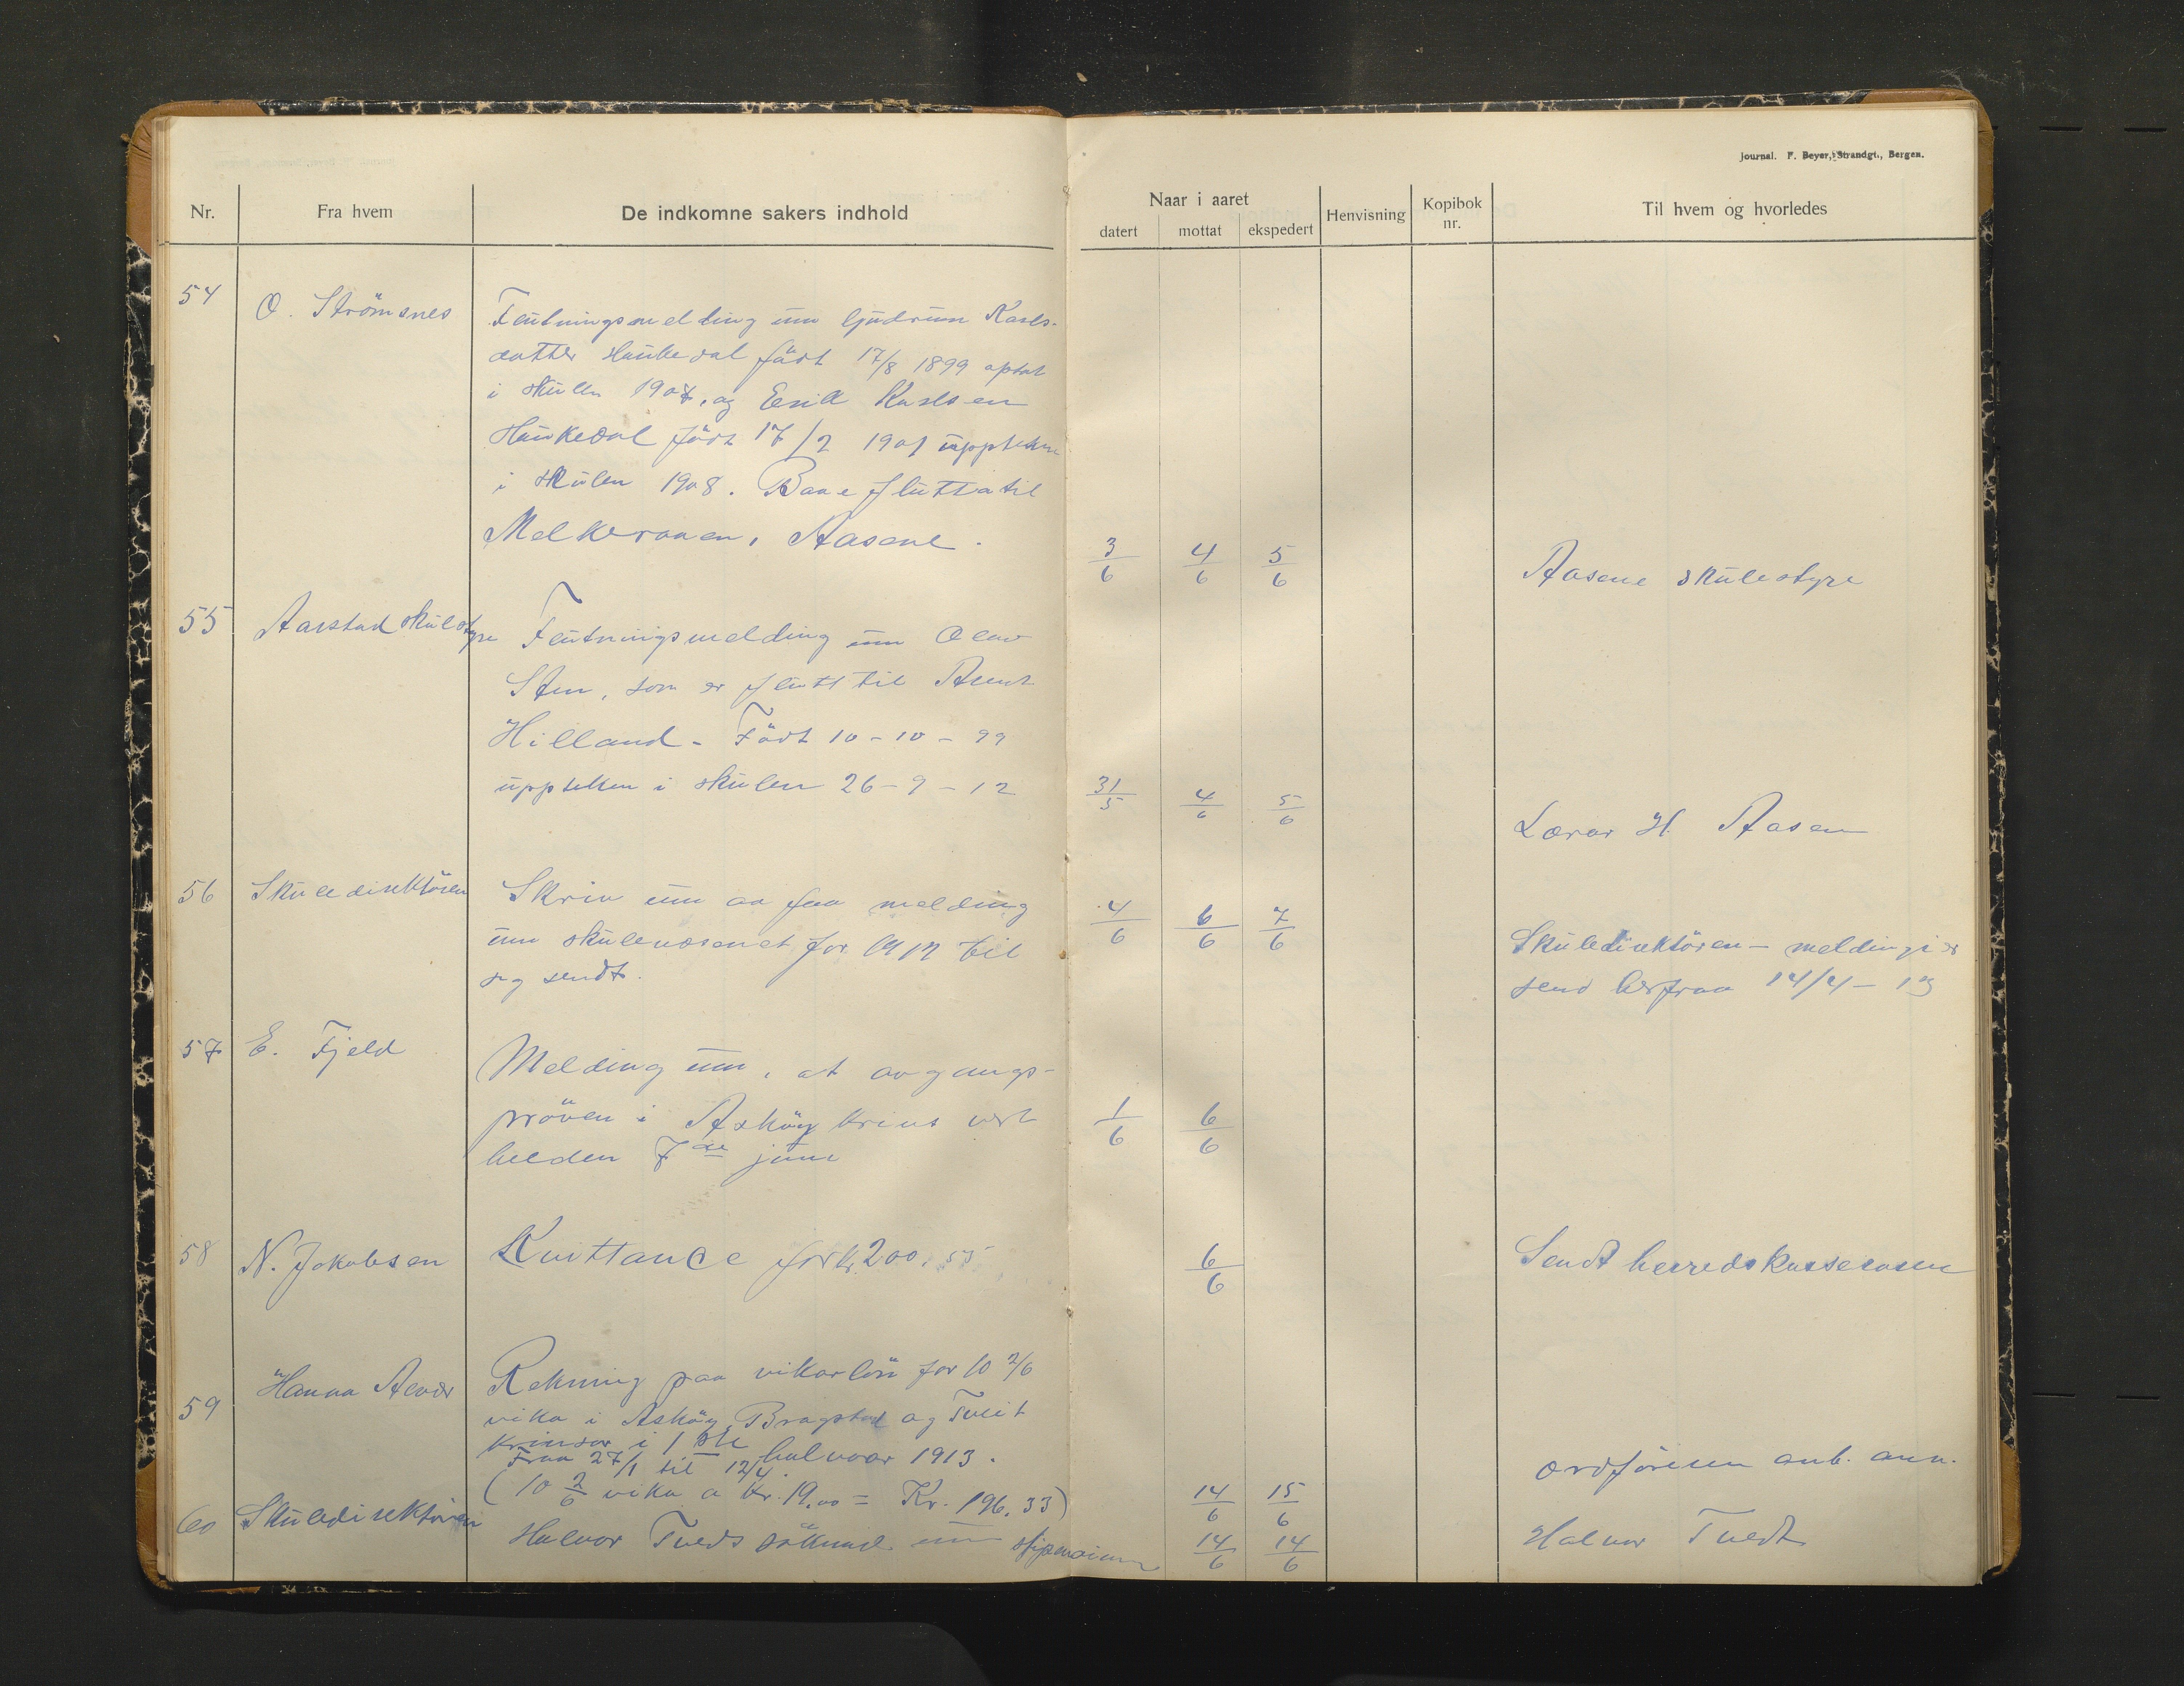 Journal. F. Beyer, Strandgt., Bergen.
Nr. Fra hvem De indkomne sakers indhold
Naar i aaret
datert mottat ekspedert Henvisning Kopibok nr. Til hvem og hvorledes
54 O. Strömsnes Flutningsmelding um Gudrun Karls-
datter Haukedal födt 17/8 1899 optat
i skulen 1907, og Erik Karlsen
Haukedal födt 17/2 1901
i skulen 1908. Baae flutta til
Melkeraaen, Aasane.
3/6 4/6 5/6 Aasene skulestyre
55 Aarstad skulestyre Flutningsmelding um Olav
Sten, som er flutt til
Hilland - Födt 10-10-99
uppteken i skulen 26-9-12
31/5 4/6 5/6 Lærar H. Aasen
56 Skuledirektören Skriv um aa faa melding
um skulevæsenet for 1912 til
seg sendt.
4/6 6/6 7/6 Skuledirektören - meldingi er
send herfraa 14/4-13
57 E. Fjeld Melding um, at avgangs-
pröven i Asköy krins vert
helden 7de juni
1/6 6/6
58 N. Jakobsen Kvittance for kr 200.55
6/6 Sendt herredskasseraren
59 Hanna Rekning paa vikarlön for 10 2/6
vika i Asköy, Bragstad og Tveit
krinsar i 1ste halvaar 1913.
Fraa 27/1 til 12/4.
(10 2/6 vika a kr. 19.00 = Kr. 196.33)
14/6 15/6 Ordföraren
60 Skuledirektören Halvor Tveds söknad um
14/6 14/6 Halvor Tvedt